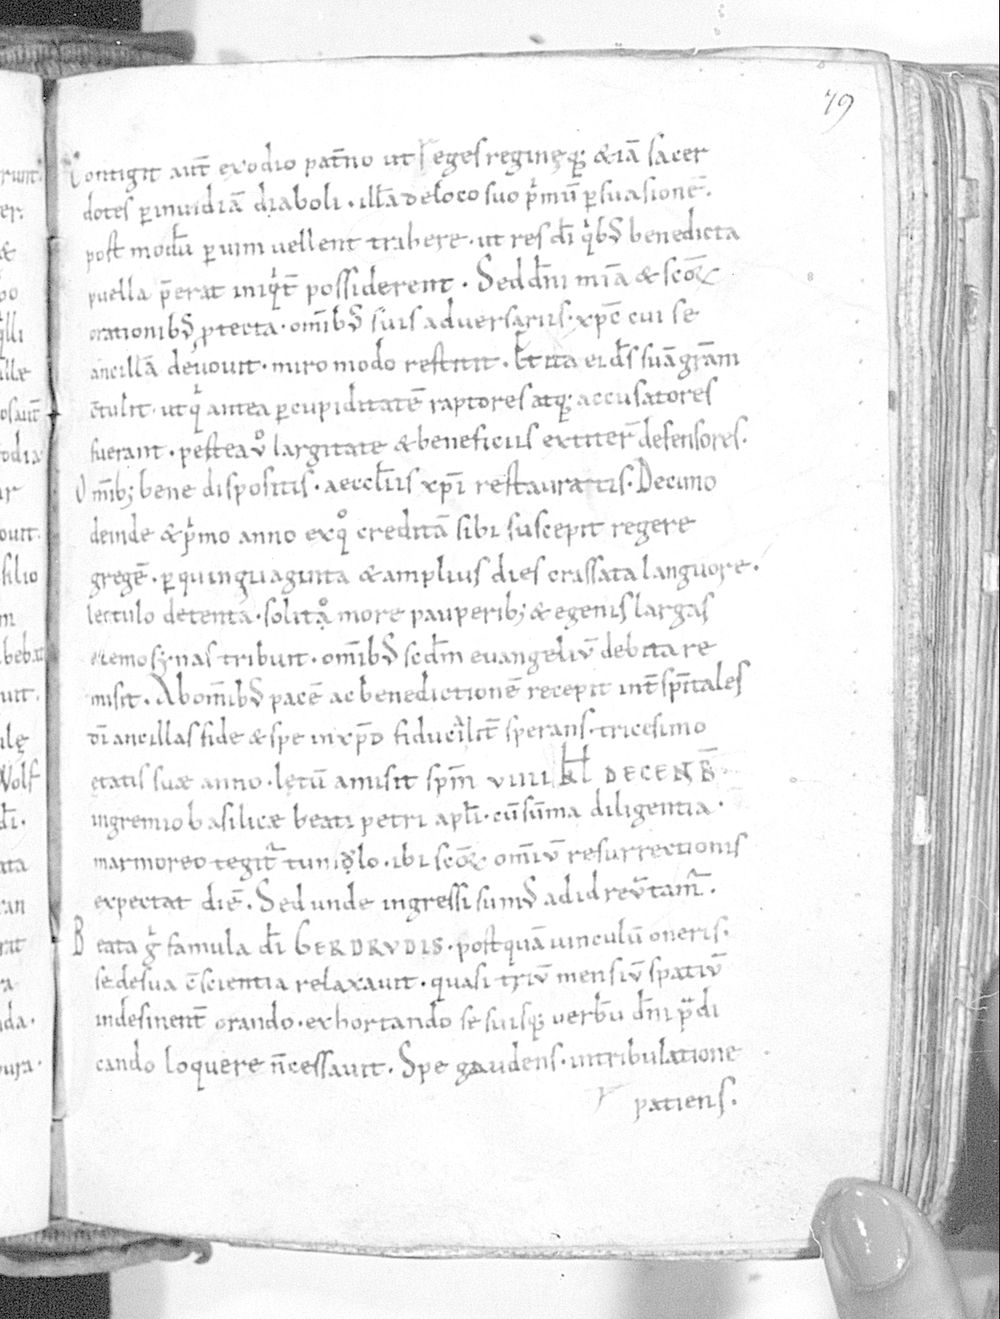 79
Contigit aut̄ ex odio pat̄no ut reges regineq; & iā sacer
dotes p̱ inuidiā diaboli · illā de loco suo p'mū p̱suasionē ·
post modū p̱ uim uellent trahere · ut res dī q'bꝰ benedicta
puella p̄erat iniq't̄ possiderent · Sed dn̄i mīa & scōꝝ
orationibꝰ ꝓtecta · om̄ibꝰ suis aduersariis · xp̄c cui se
ancillā deuouit · miro modo restitit · Et ita ei ds̄ suā gr̄am
c̄tulit · ut q' antea p̱ cupiditatē raptores atq; accusatores
fuerant · postea uͦ largitate & beneficiis extiter̄ defensores ·
Om̄ib; bene dispositis · aeccl̄iis xp̄i restauratis · Decimo
deinde & p'mo anno ex qͦ creditā sibi suscepit regere
gregē · p̱ quinquaginta & amplius dies crassata languore ·
lectulo detenta · solito more pauperib; & egenis largas
elemosynas tribuit · om̄ibꝰ scd̄m euangeliū debita re
misit · Ab om̄ibꝰ pacē ac benedictionē recepit int̄ sp̄itales
dī ancillas fide & spe in xp̄o fiducialit̄ sperans · tricesimo
etatis suæ anno · lętū amisit sp̄m VIIII kl̄ DECENB̄ ·
in gremio basilicæ beati petri apl̄i · cū sūma diligentia ·
marmoreo tegit̄ tumulo · ibi scōꝝ om̄iū resurrectionis
expectat diē · Sed unde ingressi sumꝰ ad id reu̇tam̄ ·
Beata g' famula dī GERDRVDIS · postquā uinculū oneris ·
se de sua c̄scientia relaxauit · quasi triū mensiū spatiū
indesinent̄ orando · exhortando se suisq; uerbū dn̄i p̄di
cando loquere n̄ cessauit · Spe gaudens · in tribulatione
patiens ·